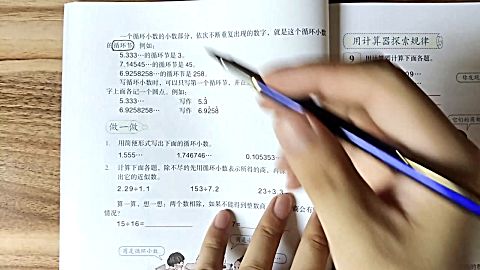 一个循环小数的小数部分，依次不断重复出现的数字，就是这个循环小数
的循环节。例如：
5.333…的循环节是 3。
7.14545…的循环节是 45。
6.9258258…的循环节是 258。
写循环小数时，可以只写第一个循环节，并在
字上面各记一个圆点。例如：
5.333… 写作 5.3̇
6.9258258… 写作 6.92̇58̇
做一做
1. 用简便形式写出下面的循环小数。
1.555… 1.746746… 0.105353
2. 计算下面各题，除不尽的先用循环小数表示所得的商，再
出它的近似数。
2.29÷1.1 153÷7.2 23÷3.3
算一算，想一想：两个数相除，如果不能得到整数商
情况？
15÷16=
用计算器探索规律
9 用计算器计算下面各题。